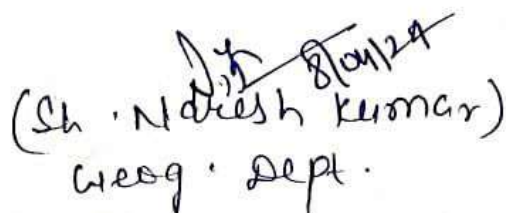 8/04/24
(Sh. Naresh Kumar)
Geog. Dept.